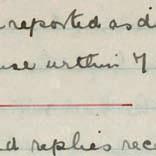 reported as di
use within 7
d replies rec